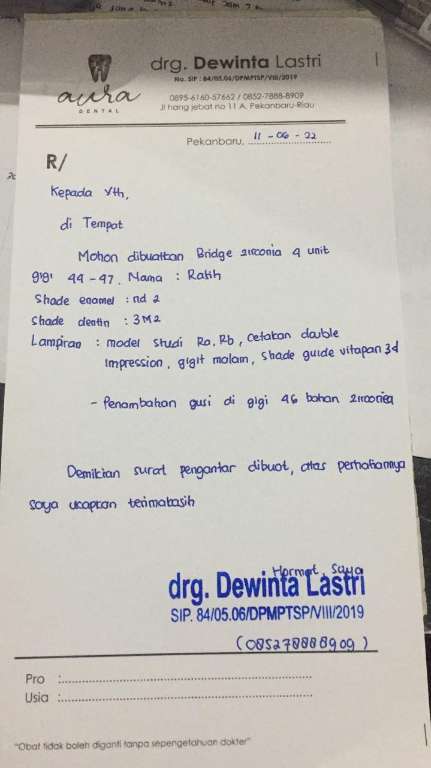 aura
DENTAL
drg. Dewinta Lastri
No. SIP : 84/05.06/DPMPTSP/VIII/2019
0895-6160-57662 / 0852-7888-8909
Jl hang jebat no 11 A. Pekanbaru-Riau
Pekanbaru, 11 - 06 - 22
R/
Kepada Yth,
di Tempat
Mohon dibuatkan Bridge zirconia 4 unit
gigi 44 - 47. Nama : Ratih
Shade enamel : nd 2
Shade dentin : 3M2
Lampiran : model studi Ra, Rb, cetakan double
impression, gigit malam, shade guide vitapan 3d
- Penambahan gusi di gigi 46 bahan zirconia
Demikian surat pengantar dibuat, atas perhatiannya
saya ucapkan terimakasih
Hormat Saya
drg. Dewinta Lastri
SIP. 84/05.06/DPMPTSP/VIII/2019
(085278888909)
Pro :
Usia :
"Obat tidak boleh diganti tanpa sepengetahuan dokter"